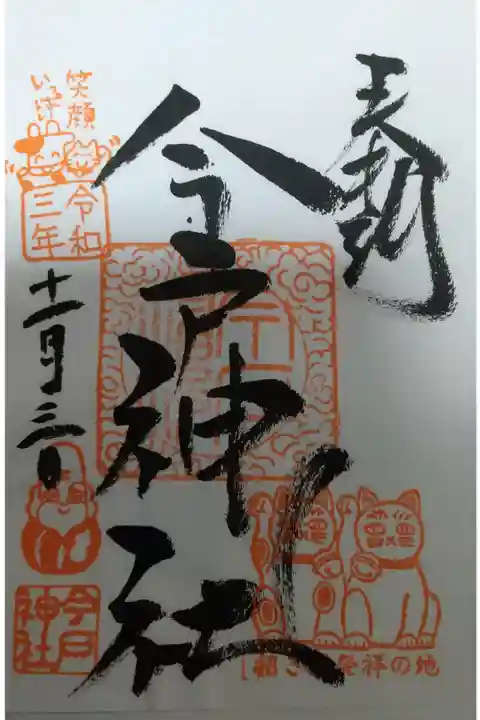 奉拝
今戸神社
笑顔
いっぱい
令和
三年
十一月三日
今戸
神社
招き 発祥の地